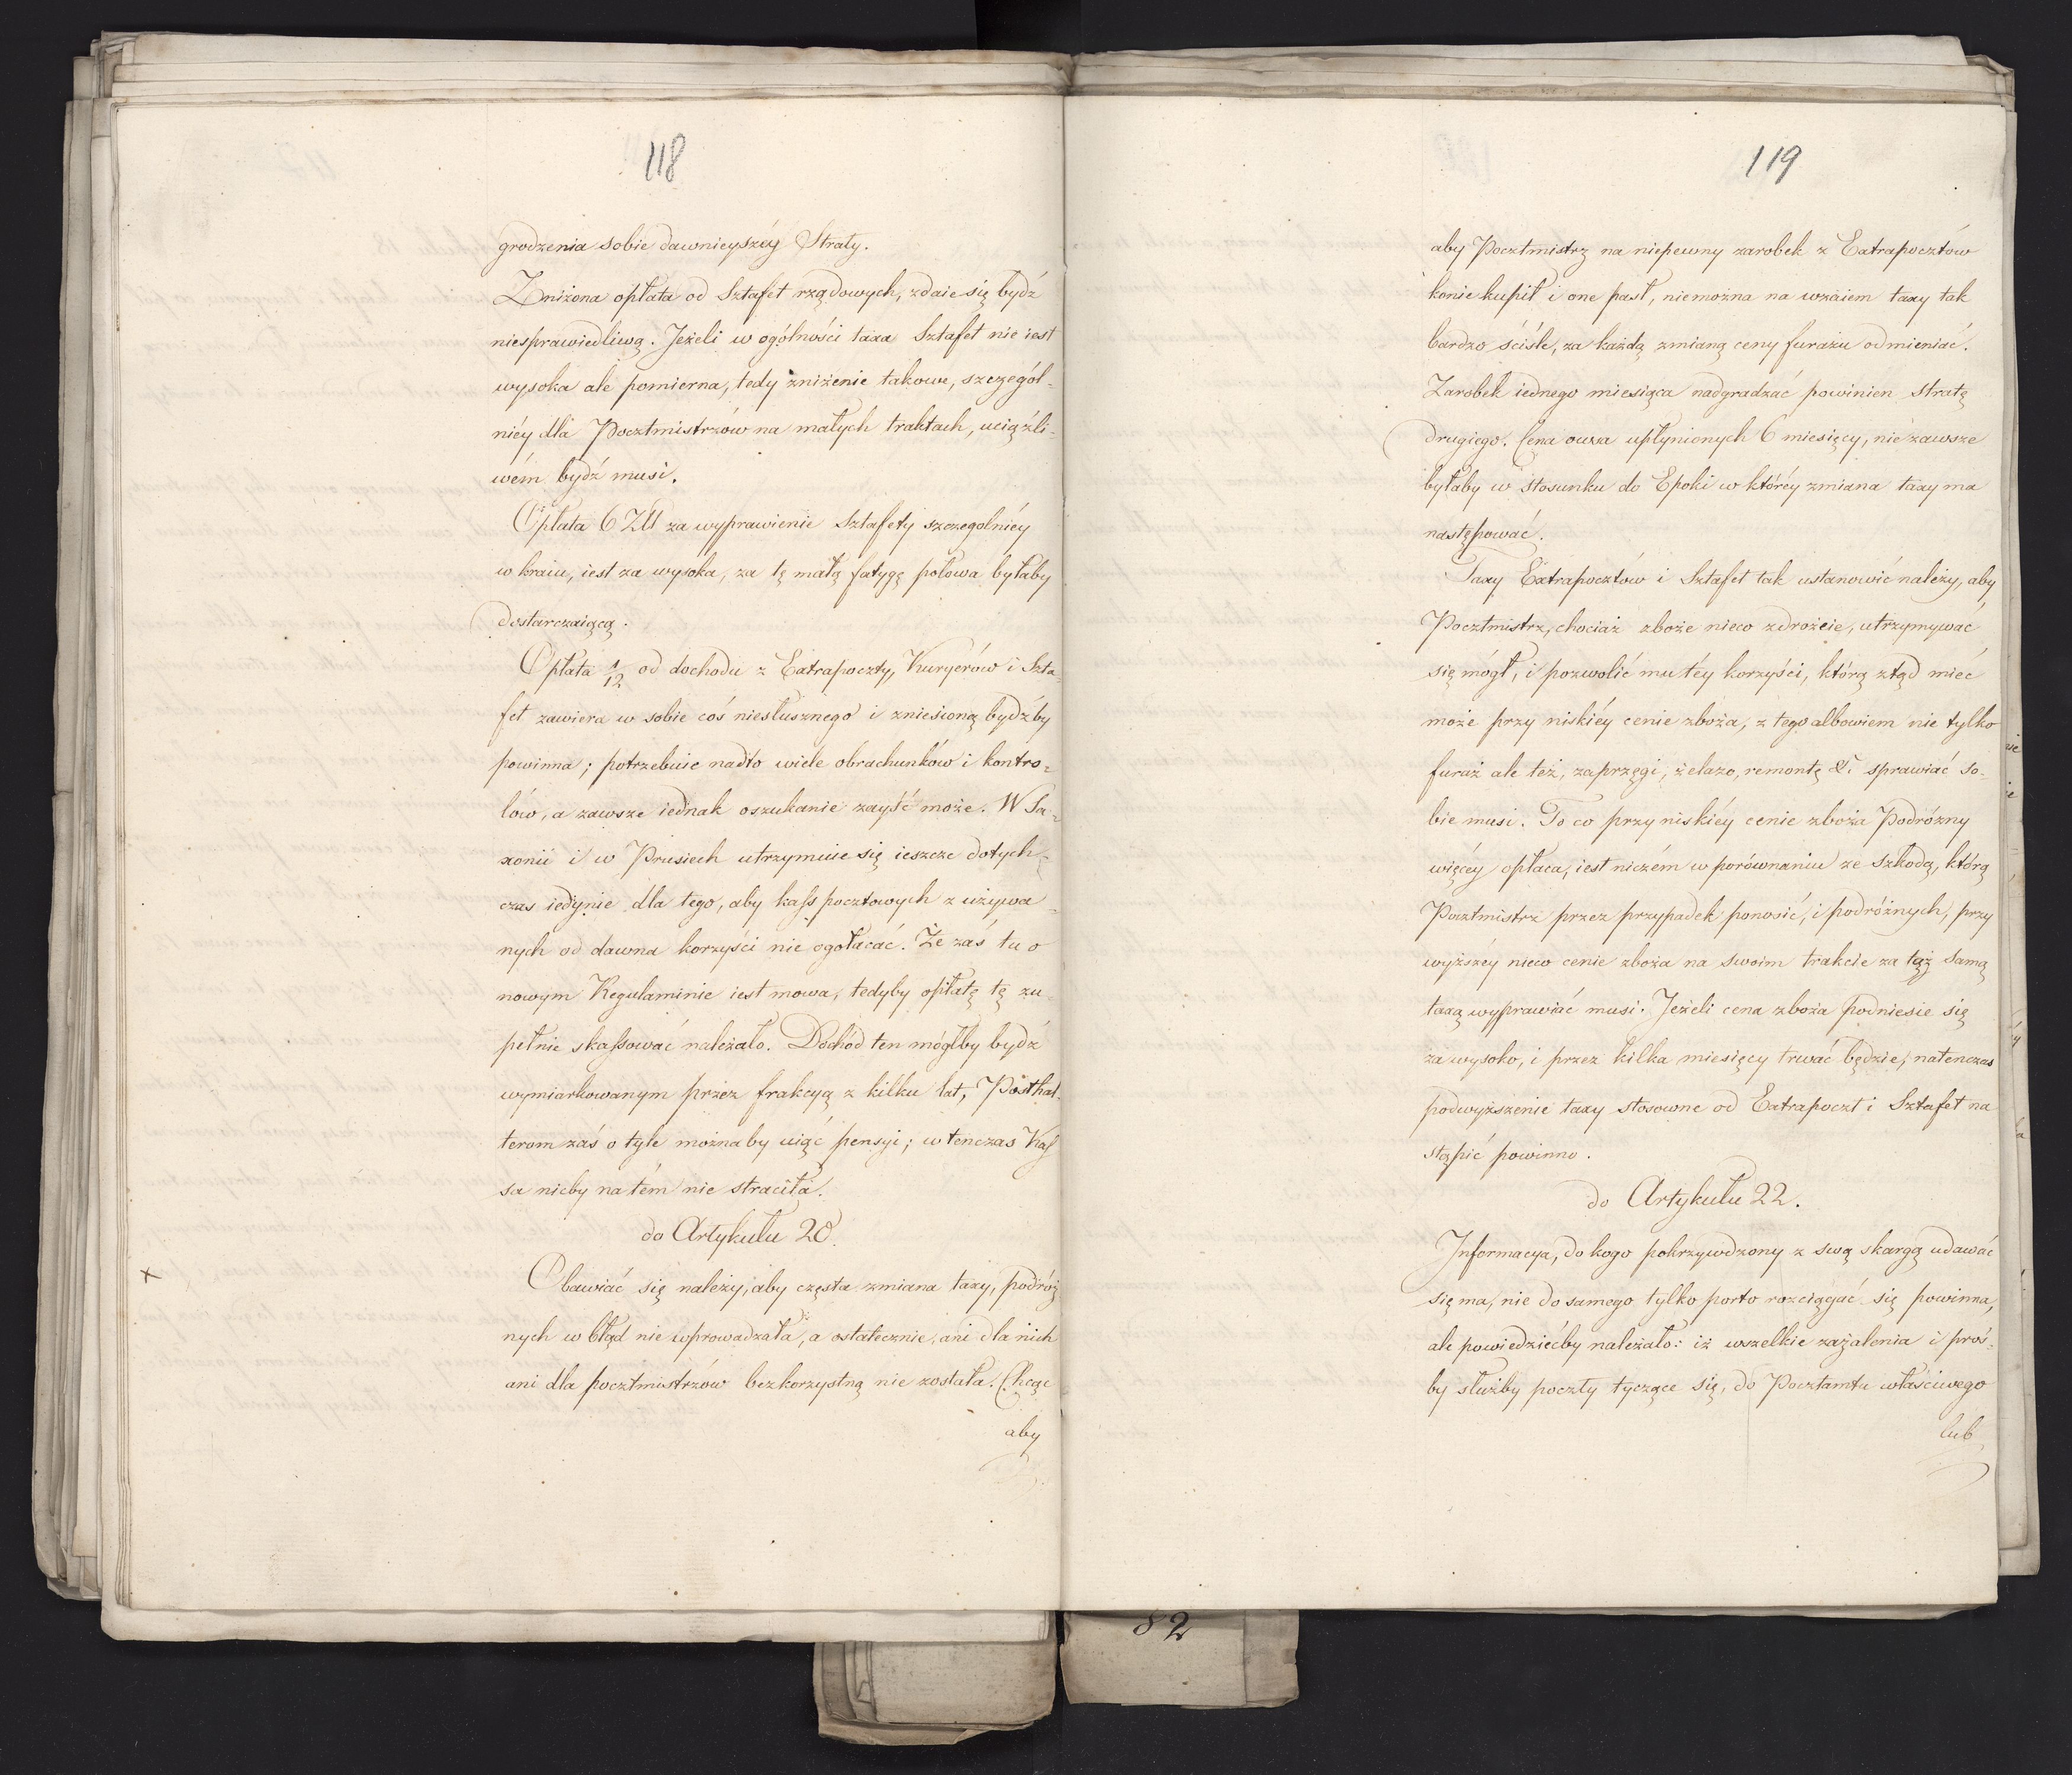 118
grodzenia sobie dawnieyszéy Straty.
Zniżona opłata od Sztafet rządowych, zdaie się bydź
niesprawiedliwą. Jeżeli w ogólności taxa Sztafet nie iest
wysoka ale pomierna, tedy zniżenie takowe, szczegól-
niéy dla Pocztmistrzów na małych traktach, uciążli-
wém bydź musi.
Opłata 6 Złł za wyprawienie Sztafety szczególniéy
w kraiu, iest za wysoka, za tę małą fatygę połowa byłaby
dostarczaiącą.
Opłata 1/12 od dochodu z Extrapoczty, Kuryerów i Szta-
fet zawiera w sobie coś niesłusznego i zniesioną bydźby
powinna; potrzebuie nadto wiele obrachunków i kontro-
lów, a zawsze iednak oszukanie zayść może. W Sa-
xonii i w Prusiech utrzymuie się ieszcze dotych-
czas iedynie dla tego, aby kass pocztowych z używa-
nych od dawna korzyści nie ogołacać. Że zaś tu o
nowym Regulaminie iest mowa, tedyby opłatę tę zu-
pełnie skassować należało. Dochód ten mógłby bydź
wymiarkowanym przez frakcyą z kilku lat, Posthal-
terom zaś o tyle możnaby uiąć pensyi; w tenczas Kas
sa nicby na tém nie straciła.
do Artykułu 20.
Obawiać się należy, aby częsta zmiana taxy, podróż
nych w błąd nie wprowadzała, a ostatecznie, ani dla nich
ani dla pocztmistrzów bezkorzystną nie została. Chcąc
aby
119
aby Pocztmistrz na niepewny zarobek z Extrapocztów
konie kupił i one pasł, niemożna na wzaiem taxy tak
bardzo ściśle, za każdą zmianą ceny furażu odmieniać.
Zarobek iednego miesiąca nadgradzać powinien stratę
drugiego. Cena owsa upłynionych 6 miesięcy, nie zawsze
byłaby w stosunku do Epoki w któréy zmiana taxy ma
następować.
Taxy Extrapocztów i Sztafet tak ustanowić należy, aby
Pocztmistrz, chociaż zboże nieco zdrożeie, utrzymywać
się mógł, i pozwolić mu téy korzyści, którą ztąd mieć
może przy niskiéy cenie zboża, z tego albowiem nie tylko
furaż ale też, zaprzęgi, żelazo, remontę &c sprawiać so-
bie musi. To co przy niskiéy cenie zboża Podróżny
więcéy opłaca, iest niczém w porównaniu ze szkodą, którą
Pocztmistrz przez przypadek ponosić, i podróżnych, przy
wyższéy nieco cenie zboża na swoim trakcie za tąż samą
taxą wyprawiać musi. Jeżeli cena zboża podniesie się
za wysoko, i przez kilka miesięcy trwać będzie, natenczas
podwyższenie taxy stosowne od Extrapoczt i Sztafet na
stąpić powinno.
do Artykułu 22.
Informacya, do kogo pokrzywdzony z swą skargą udawać
się ma, nie do samego tylko porto rozciągać się powinna,
ale powiedziećby należało: iż wszelkie zażalenia i proś-
by służby poczty tyczące się, do Pocztamtu właściwego
lub
82